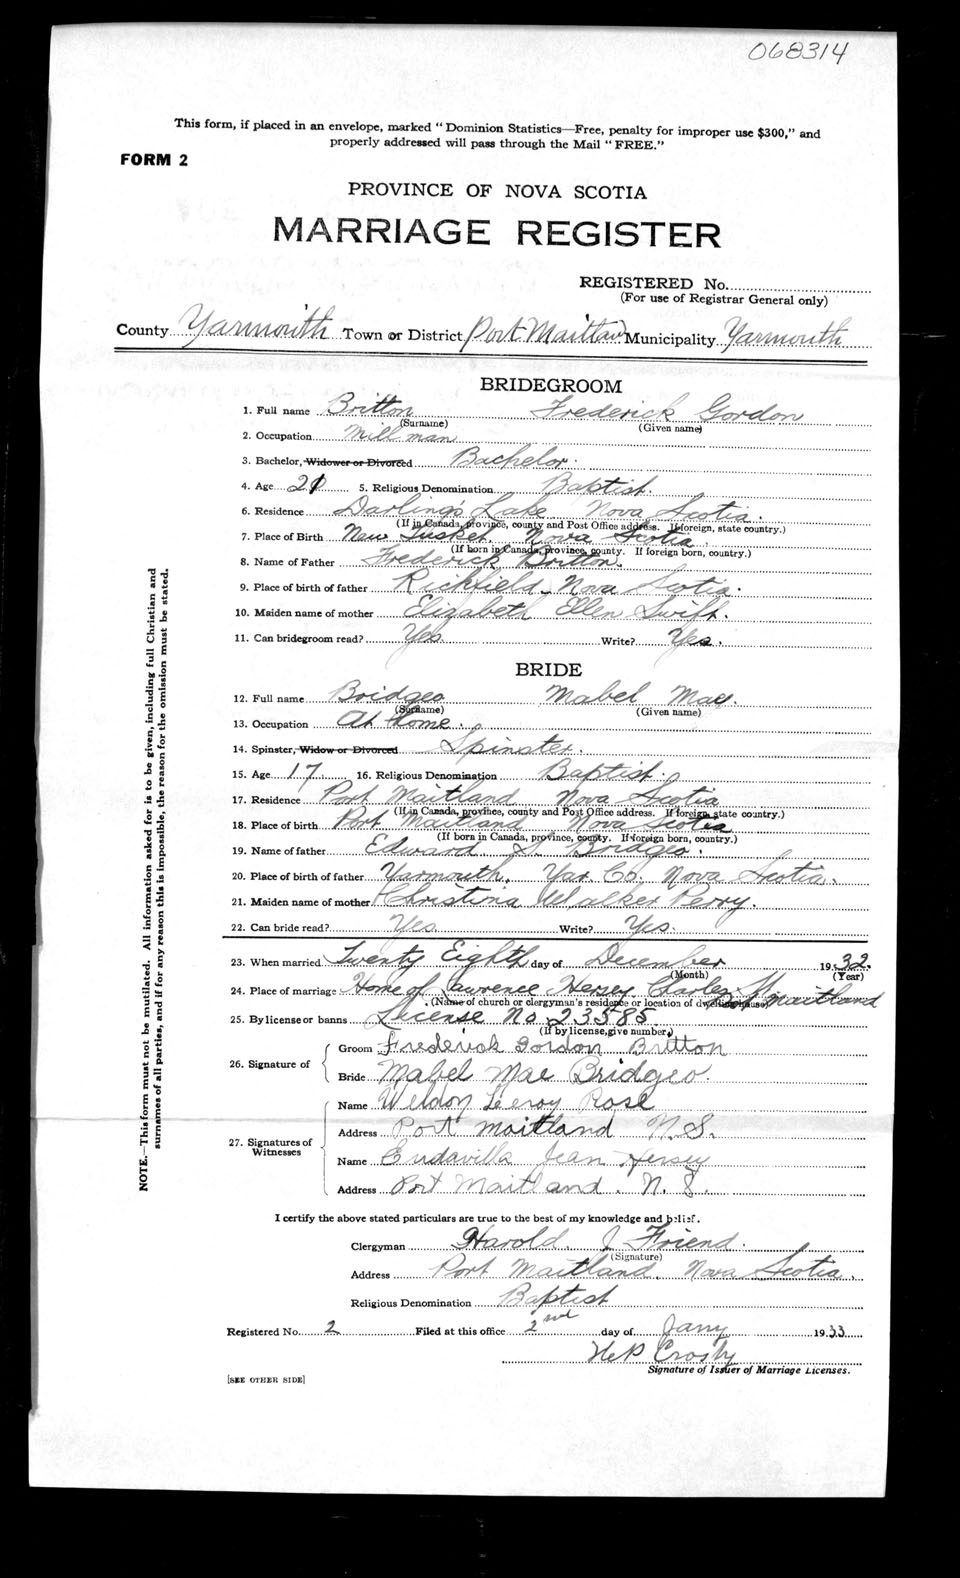 068314
This form, if placed in an envelope, marked "Dominion Statistics—Free, penalty for improper use $300," and
properly addressed will pass through the Mail "FREE."
FORM 2
PROVINCE OF NOVA SCOTIA
MARRIAGE REGISTER
REGISTERED No.
(For use of Registrar General only)
County Yarmouth Town or District Port Maitland Municipality Yarmouth
BRIDEGROOM
1. Full name Britton Frederick Gordon
(Surname) (Given name)
2. Occupation Mill man
3. Bachelor, Widower or Divorced Bachelor.
4. Age 21 5. Religious Denomination Baptist.
6. Residence Darling's Lake Nova Scotia.
(If in Canada, province, county and Post Office address. If foreign, state country.)
7. Place of Birth New Tusket, Nova Scotia.
(If born in Canada, province, county. If foreign born, country.)
8. Name of Father Frederick Britton.
9. Place of birth of father Richfield, Nova Scotia.
10. Maiden name of mother Elizabeth Ellen Swift.
11. Can bridegroom read? Yes Write? Yes.
BRIDE
12. Full name Bridgeo Mabel Mae.
(Surname) (Given name)
13. Occupation At Home.
14. Spinster, Widow or Divorced Spinster.
15. Age 17 16. Religious Denomination Baptist.
17. Residence Port Maitland Nova Scotia
(If in Canada, province, county and Post Office address. If foreign, state country.)
18. Place of birth Port Maitland Nova Scotia
(If born in Canada, province, county. If foreign born, country.)
19. Name of father Edward S. Bridgeo.
20. Place of birth of father Yarmouth, Yar. Co. Nova Scotia.
21. Maiden name of mother Christina Walker Perry.
22. Can bride read? Yes Write? Yes.
23. When married Twenty Eighth day of December 1932.
(Month) (Year)
24. Place of marriage Home of Lawrence Hersey Charles St Maitland
(Name of church or clergyman's residence or location of dwelling house)
25. By license or banns License No 23585
(If by license, give number.)
26. Signature of
Groom Frederick Gordon Britton
Bride Mabel Mae Bridgeo.
27. Signatures of
Witnesses
Name Weldon Leeroy Rose
Address Port Maitland N.S.
Name Eudavilla Jean Hersey
Address Port Maitland. N.S.
I certify the above stated particulars are true to the best of my knowledge and belief.
Clergyman Harold J Friend.
(Signature)
Address Port Maitland, Nova Scotia.
Religious Denomination Baptist
Registered No. 2 Filed at this office 2nd day of Jany 1933
Crosby
Signature of Issuer of Marriage Licenses.
[SEE OTHER SIDE]
NOTE.—This form must not be mutilated. All information asked for is to be given, including full Christian and
surnames of all parties, and if for any reason this is impossible, the reason for the omission must be stated.